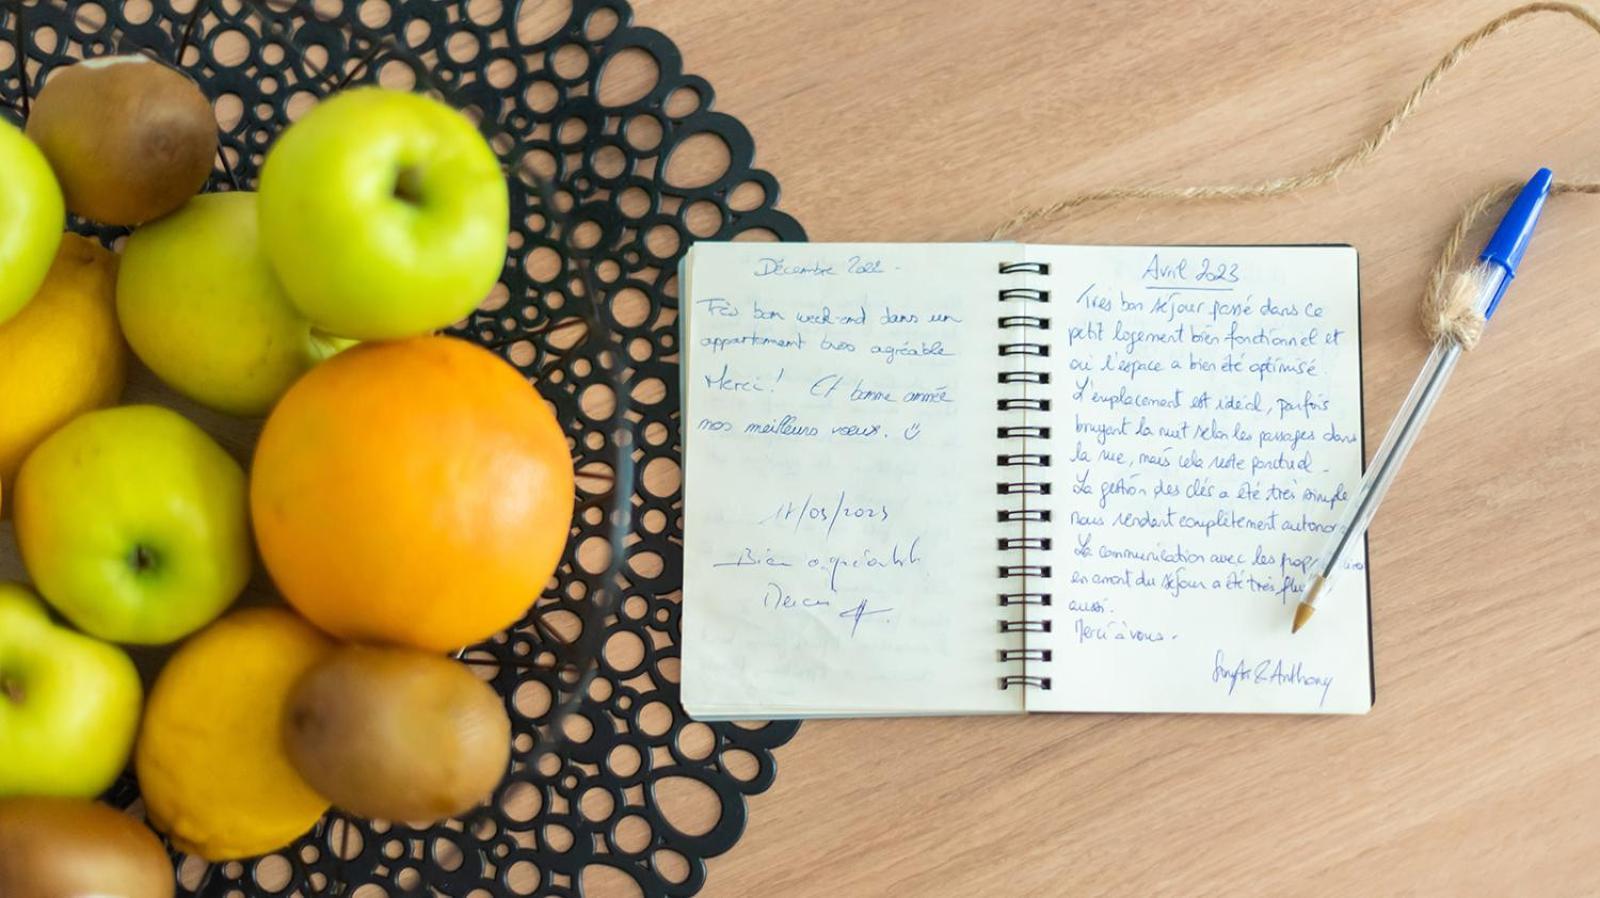 Décembre 2022 -
Très bon week-end dans un
appartement très agréable
Merci! Et bonne année
nos meilleurs vœux.
/03/2023
Bien agréable
Merci
Avril 2023
Très bon séjour passé dans ce
petit logement bien fonctionnel et
où l'espace a bien été optimisé.
L'emplacement est idéal, parfois
bruyant la nuit selon les passages dans
la rue, mais cela reste ponctuel -
La gestion des clés a été très simple
nous rendant complètement autono
La communication avec les prop
en amont du séjour a été très flu
aussi.
Merci à vous -
& Anthony